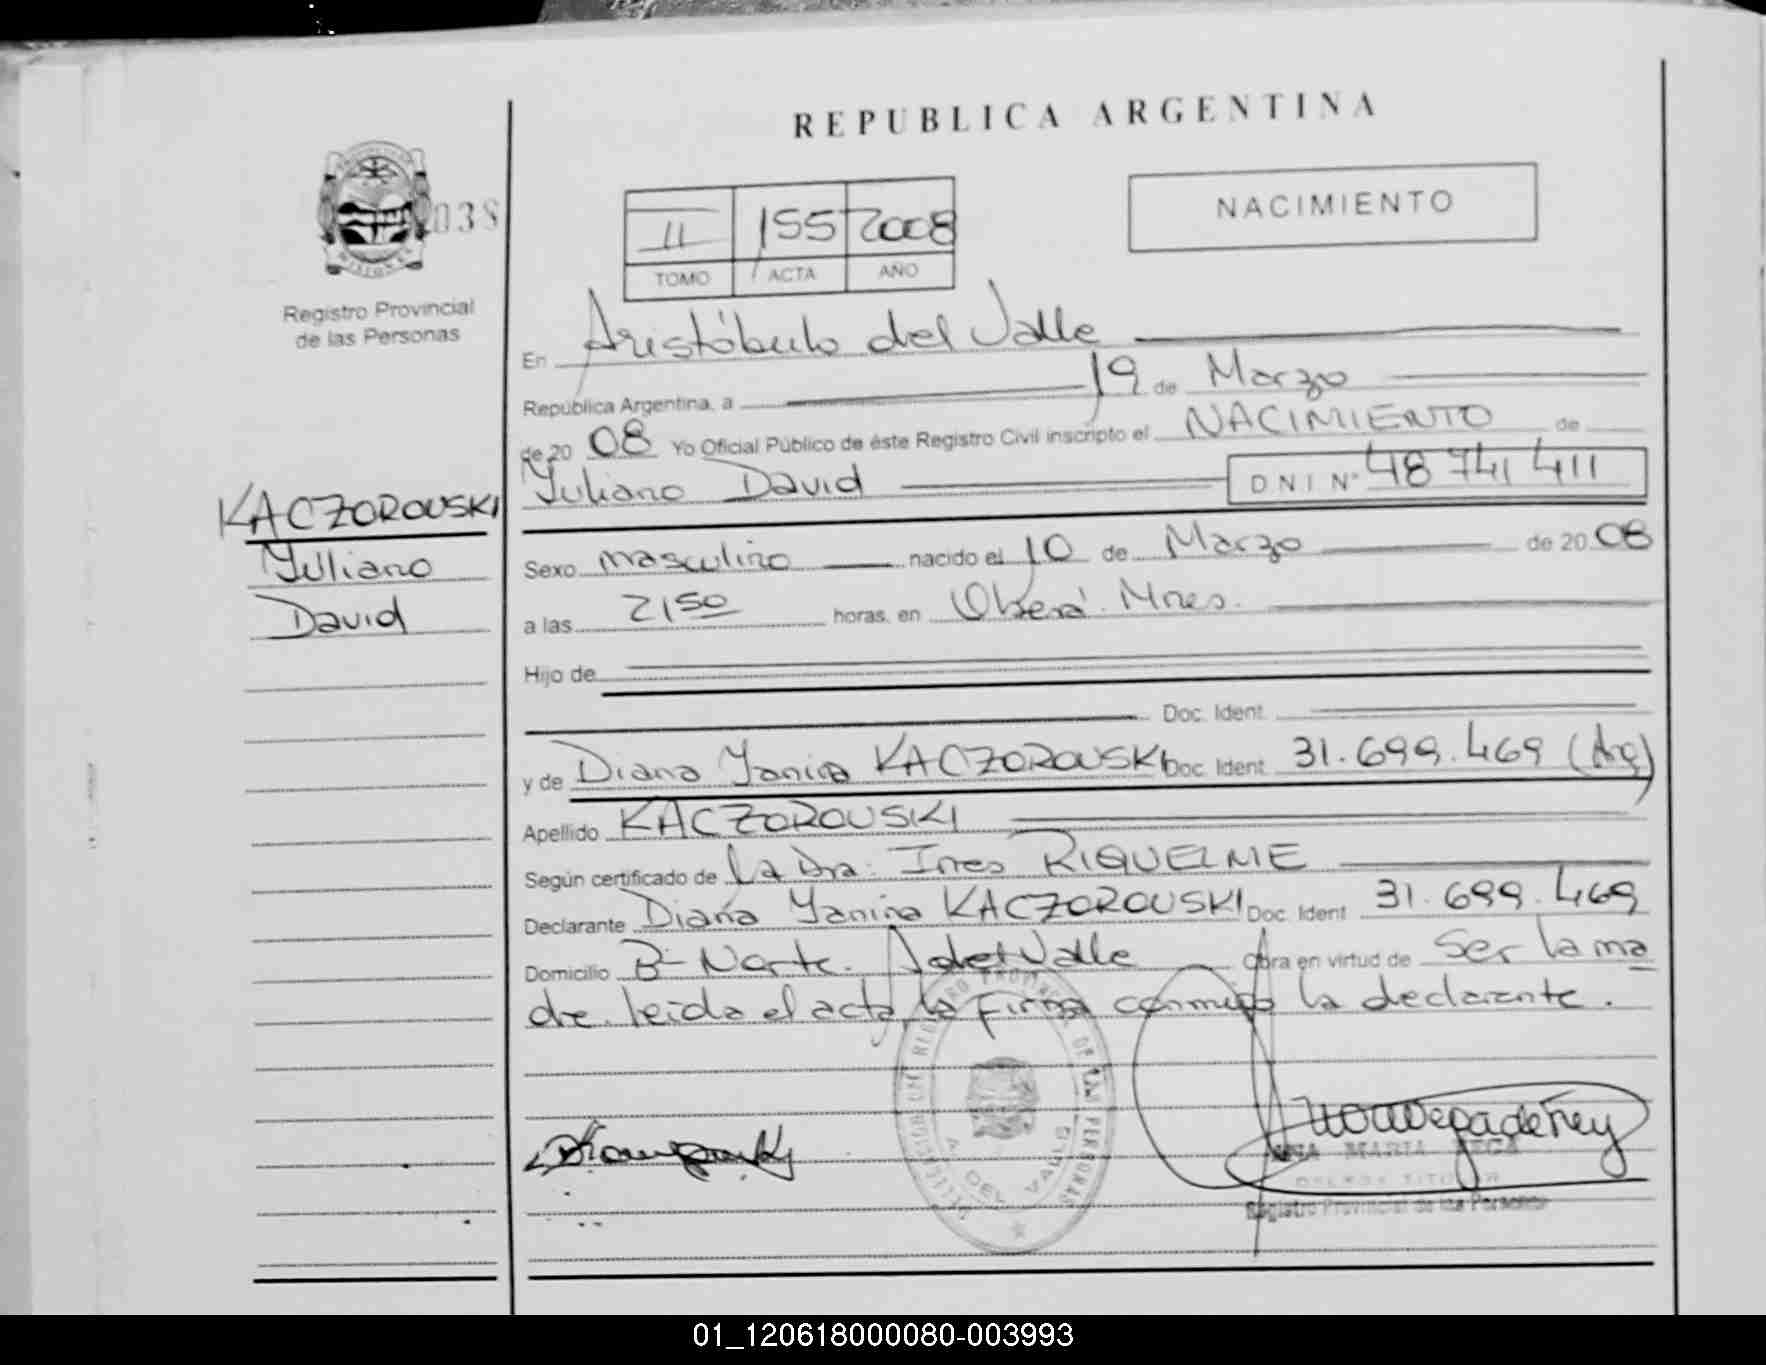 REPUBLICA ARGENTINA
NACIMIENTO
II 155 2008
TOMO ACTA AÑO
038
PROVINCIA DE MISIONES
Registro Provincial
de las Personas
KACZOROUSKI
Yuliano
David
En Aristóbulo del Valle
República Argentina, a 19 de Marzo
de 20 08 Yo Oficial Público de éste Registro Civil inscripto el NACIMIENTO de
Yuliano David DNI Nº 48 741 411
Sexo masculino nacido el 10 de Marzo de 20 08
a las 2150 horas, en Oberá. Mnes.
Hijo de
Doc. Ident.
y de Diana Yanina KACZOROUSKI Doc. Ident. 31.699.469 (Arg)
Apellido KACZOROUSKI
Según certificado de La Dra: Ines RIQUELME
Declarante Diana Yanina KACZOROUSKI Doc. Ident. 31.699.469
Domicilio Bº Norte. A del Valle Obra en virtud de Ser la ma
dre. leida el acta, la firma conmigo la declarante.
REGISTRO PROVINCIAL DE LAS PERSONAS
A. DEL VALLE
ANA MARIA VEGA
Registro Provincial de las Personas
01_120618000080-003993